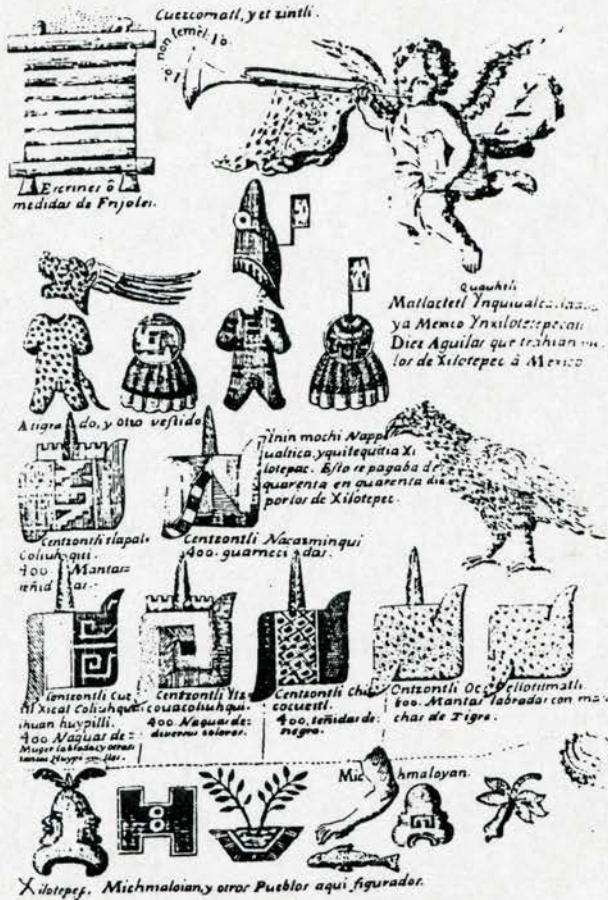 Cuezcomatl, y et zintli.
Escrines ô
medidas de Frijoles.
Quauhtli
Matlactetl Ynquiualca
ya Mexico Ynxilotepecatl
Diez Aguilas que trahian
los de Xilotepec â Mexico
Atigrado, y otro vestido
Ynin mochi Napp
ualtica, yquitequitia Xi
lotepac. Esto se pagaba de
quarenta en quarenta dia
por los de Xilotepec.
Centzontli tlapal-
Coliuhqui.
400. Mantas-
teñidas.-
Centzontli Nacazminqui
400. guarnecidas.
Centzontli Cue
itl Xical Coliuhqui
ihuan huypilli.
400. Naguas de=
Muger labladas, y otras
tantas Huypi
Centzontli Ytz
couacoliuhqui.
400. Naguas de:
diversos colores.
Centzontli Chi
cocueitl.
400, teñidas de:
negro.
Ontzontli Oc ellotilmatli
800. Mantas labradas con man
chas de Tigre.
Michmaloyan.
Xilotepec, Michmaloian, y otros Pueblos aqui figurados.